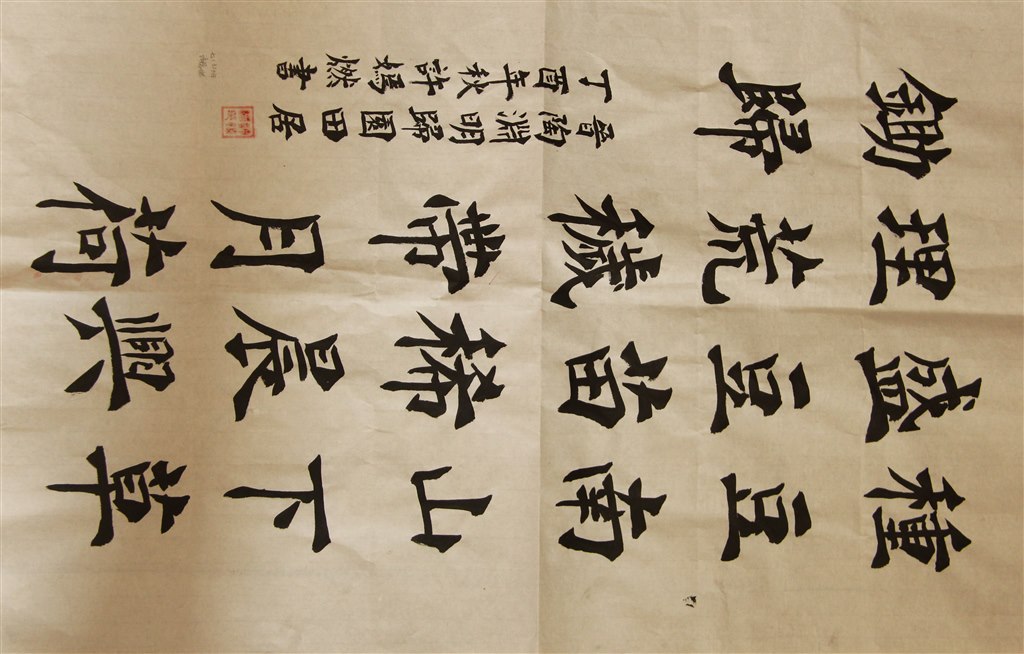 種豆南山下草
盛豆苗稀晨興
理荒穢帶月荷
鋤歸
晉陶淵明歸園田居
丁酉年秋許嫣燃書